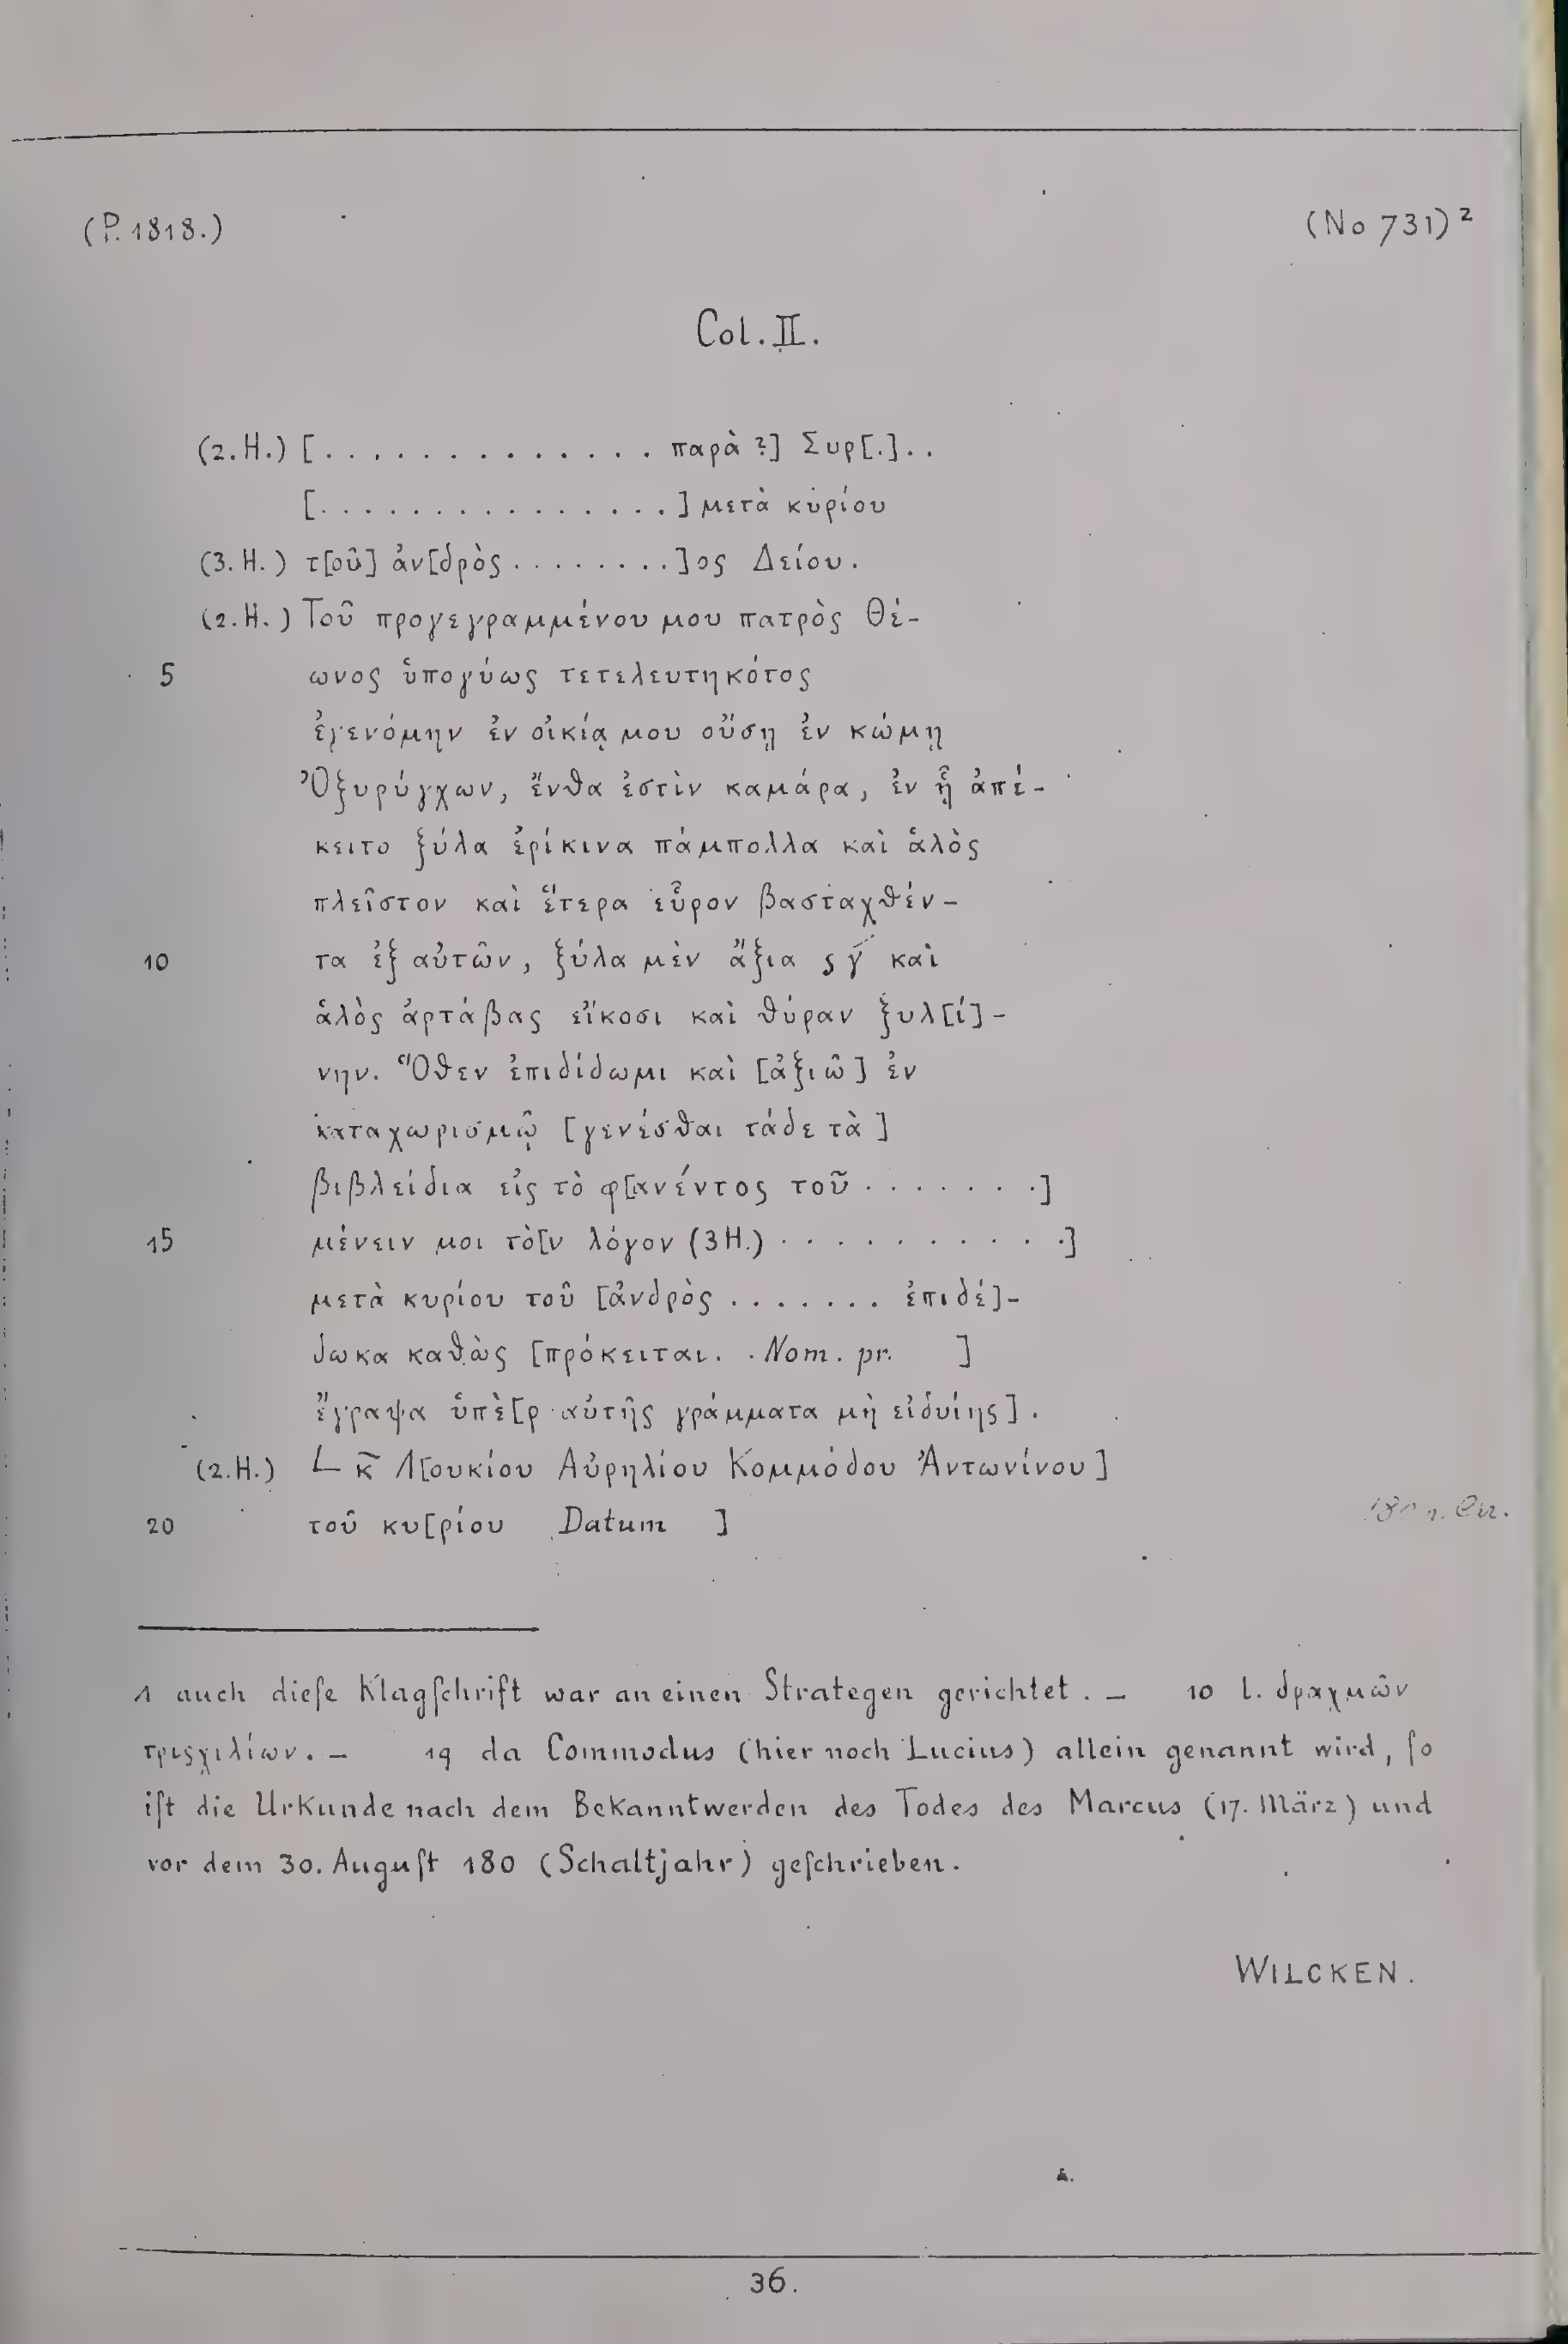 (P. 1818.) (No 731)²
Col. II.
(2. H.) [. . . . . . . . . . . . . . παρὰ ?] Συρ[.] . .
[. . . . . . . . . . . . . . . .] μετὰ κυρίου
(3. H.) τ[οῦ] ἀν[δρὸς . . . . . . . .]ος Δείου.
(2. H.) Τοῦ προγεγραμμένου μου πατρὸς Θέ-
5 ωνος ὑπογύως τετελευτηκότος
ἐγενόμην ἐν οἰκίᾳ μου οὔσῃ ἐν κώμῃ
Ὀξυρύγχων, ἔνθα ἐστὶν καμάρα, ἐν ᾗ ἀπέ-
κειτο ξύλα ἐρίκινα πάμπολλα καὶ ἁλὸς
πλεῖστον καὶ ἕτερα εὗρον βασταχθέν-
10 τα ἐξ αὐτῶν, ξύλα μὲν ἄξια ϛ ͵γ καὶ
ἁλὸς ἀρτάβας εἴκοσι καὶ θύραν ξυλ[ί]-
νην. Ὅθεν ἐπιδίδωμι καὶ [ἀξιῶ] ἐν
καταχωρισμῷ [γενέσθαι τάδε τὰ]
βιβλείδια εἰς τὸ φ[ανέντος τοῦ . . . . . . .]
15 μένειν μοι τὸ[ν λόγον (3 H.) . . . . . . . . . . .]
μετὰ κυρίου τοῦ [ἀνδρὸς . . . . . . . ἐπιδέ]-
δωκα καθὼς [πρόκειται. . Nom. pr. ]
ἔγραψα ὑπὲ[ρ αὐτῆς γράμματα μὴ εἰδυίης].
(2. H.) L κ̅ Λ[ουκίου Αὐρηλίου Κομμόδου Ἀντωνίνου]
20 τοῦ κυ[ρίου Datum ]
1 auch dieſe Klagſchrift war an einen Strategen gerichtet. — 10 l. δραχμῶν
τριςχιλίων. — 19 da Commodus (hier noch Lucius) allein genannt wird, ſo
iſt die Urkunde nach dem Bekanntwerden des Todes des Marcus (17. März) und
vor dem 30. Auguſt 180 (Schaltjahr) geſchrieben.
WILCKEN.
36.